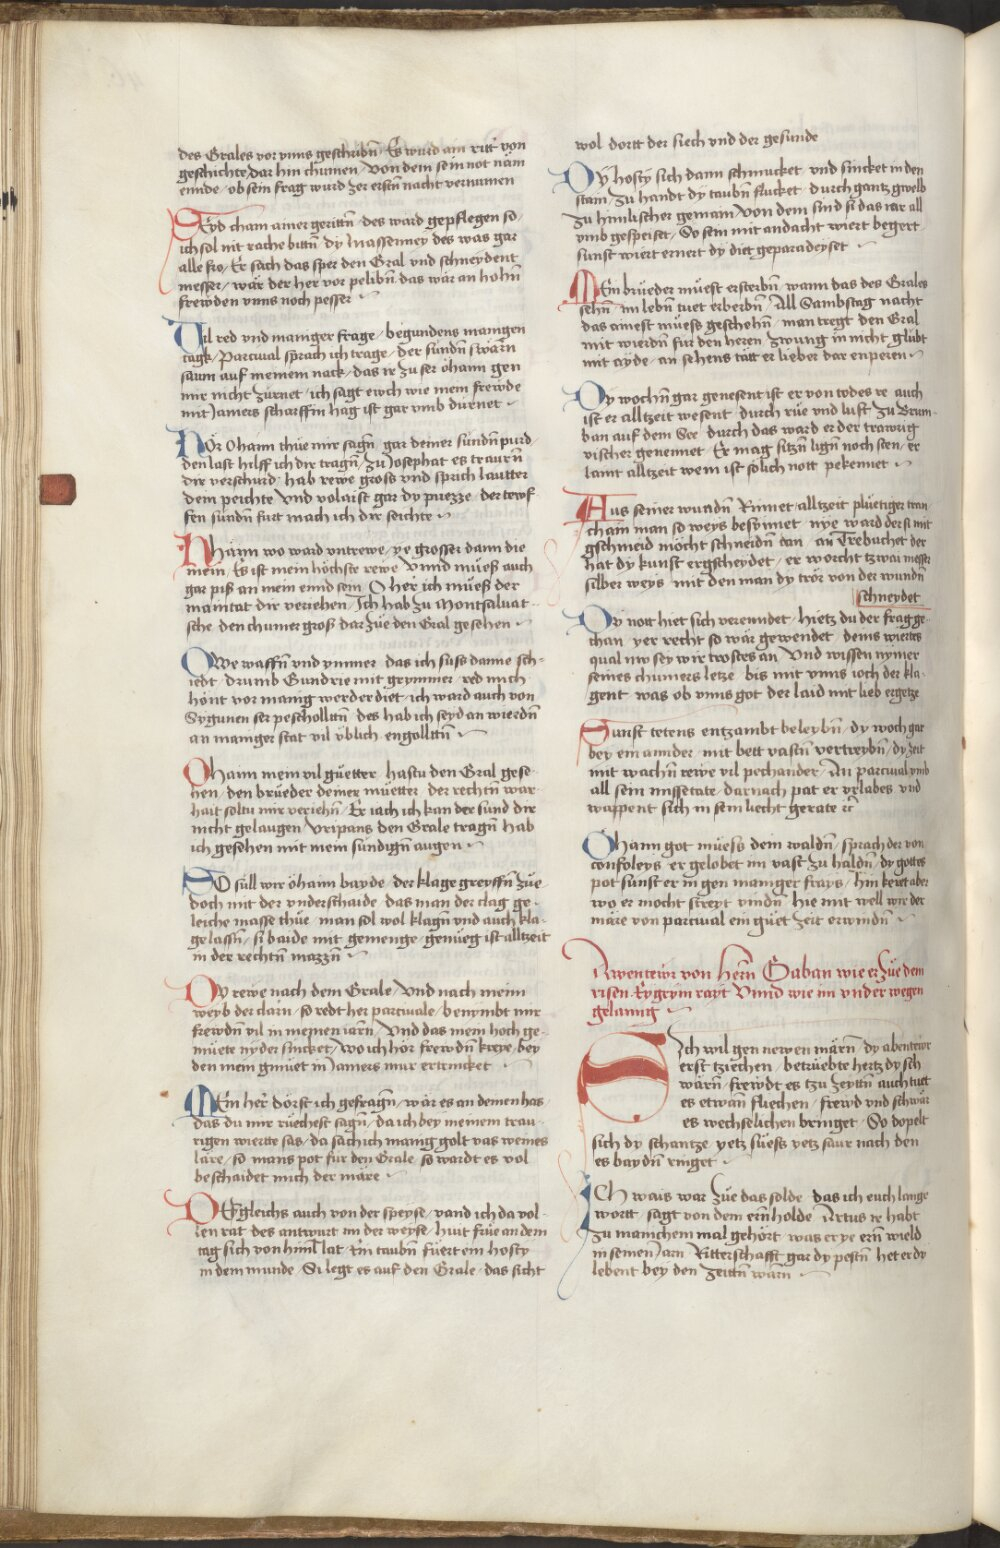 des Grales vor vnns geschribñ Es wurd ain ritt von
geschichte dar hin chumen / von dem sein not näm
ennde / ob sein frag wurd zer erstñ nacht vernumen
SEyd cham ainer gerittñ / des ward gepflegen so /
ich sol nit rache bittñ / dy massenney des was gar
alle fro / Er sach das sper den Gral vnd schneydent
messer / wär der her vor pelibñ das wär an hohñ
frewden vnns noch pesser
Uil red vnd maniger frage / begundens manigen
tagk / Parcival sprach ich trage / der sundñ swärñ
saum auf meinem nack / das ir zu ser öhaim gen
mir nicht zürnet / ich sagt ewch wie mein frewde
mit Jamers scharffm hag ist gar vmb dürnet
HÖr Ohaim thüe mir sagñ / gar deiner sündñ pürd /
den last hilff ich dir tragñ / zu Josephat es traurñ
dir verschurd / hab rewe gross vnd sprich lautter
dem peichte / Vnd volaist gar dy puezze / der tewf
fen sündñ furt mach ich dir seichte
Ohäim wo ward vntrewe / ye grosser dann die
mein / Es ist mein höchste rewe / Vnnd müess auch
gar piss an mein ennd sein / O her ich müess der
maintat dir veriehen / Ich hab zu Montsaluat
sche den chumer gross dar züe den Gral gesehen
OWe waffñ vnd ymmer / das ich suss danne sch=
iedt / drumb Gundrie mit grymmer / red mich
hönt vor manig werder diet / ich ward auch von
Sygunen ser pescholltñ / des hab ich seyd an wierdñ
an maniger stat vil üblich engolltñ
Ohaim mein vil güetter / hastu den Gral gese=
hen / den brüeder deiner müetter / der rechtñ war
hait soltu mir veriehñ / Er iach ich kan der sund dir
nicht gelaugen / Vripans den Grale tragñ / hab
ich gesehen mit mein sündigñ augen
SO süll wir öhaim bayde / der klage greyffñ züe
doch mit der vnderschaide / das man der clag ge=
leiche masse thüe / man sol wol klagñ vnd auch kla=
ge lassñ / si baide mit gemenge / genüeg ist alltzeit
in der rechtñ mazzñ
DY rewe nach dem Grale / Vnd nach meim
weyb der clarñ / so redt her parcivale / benymbt mir
frewdñ vil in meinen iarñ / Vnd das mein hoch ge=
müete nyder sincket / wo ich hör frewdñ kreye / bey
den mein gmüet in Jamers mur ertrincket
MEin her dörst ich gefragñ / wär es an deinen has /
das du mir rüechest sagñ / da ich bey meinem trau /
rigen wirtte sas / da sach ich manig golt vas weines
läre / so mans pot für den Grale / so wardt es vol
beschaidet mich der märe
DErgleichs auch von der speyse / vand ich da vol=
len rat / des antwurt im der weyse / hiut früe an dem
tag sich von himl lat / Ein taubñ füert ein hosty
in dem munde / Si legt es auf den Grale / das sicht
wol dortt der siech vnd der gesunde
DY hosty sich dann schmucket / vnd sincket in den
stain / zu handt dy taubñ flucket / durch gantz gwelb
zu himlischer gemain / von dem sind si das iar all
vmb gespeiset / So sein mit andacht wiert begert
sunst wiert ernert dy diet geparadeyset
MEin brüeder müest ersterbñ / wann das des Grales
sehñ / im lebñ tuet erberbñ / All Sambstag nacht
das ainest müess geschehñ / man tregt den Gral
mit wierdñ für den heren / zwung in nicht glübt
mit ayde / an sehens tätt er lieber dar enperen
DY wochñ gar genesent / ist er von todes re / auch
ist er alltzeit wesent / durch rüe vnd lust zu Brum=
ban auf dem See / durch das ward er der trawrig
vischer genennet / Er mag sitzñ ligñ noch sten / er
laint alltzeit wem ist sölich nott pekennet
AUs seiner wundñ Rinnet / alltzeit pluetiger tran
chain man so weys besynnet / nye ward der si mit
gschmeid möcht schneidñ dan / an Trebuchet der
hat dy kunst ergscheydet / er worcht tzwai messer
silber weys / mit den man dy trör von der wundñ
schneydet
DY nott hiet sich verenndet / hietz du der frag ge=
chan / yer recht so wär gewendet / deins wirttes
qual nw sey wir trostes an / Vnd wissen nymer
seines chumers letze / bis mit vnns ioch der kla=
gent / was ob vnns got der laid mit lieb ergetze
Sunst tetens entzambt beleybñ / dy woch gar
bey ein ainder / mit bett vastñ vertreybñ / dy zeit
mit wachñ rewe vil pechander / An parcival vmb
all sein missetate / darnach pat er vrlabes / vnd
wappent sich in sein liecht gerate etc̃
Ohaim got müess dein waldñ / sprach der von
confoleys / er gelobet im vast zu haldñ / dy gottes
pot sunst er in gen maniger frays / hin keret aber
wo er möcht streyt vindñ / hie mit well wir der
märe von parcival ein güet zeit erwindñ
Awentewr von herñ Gaban wie er züe dem
risen Eygrym rayt Vnnd wie im vnder wegen
gelanng
Sich wil gen newen märñ / dy abentewr
erst tziechen / betrüebte hertz dy sch
wärñ / frewdt es tzu zeyttñ auch tutt
es etwañ fliechen / frewd vnd schwär
es wechselichen bringet / So dopelt
sich dy schantze / yetz süess yetz saur nach den
es baydñ ringet
ICh wais war züe das solde / das ich euch lange
wortt / sagt von dem ernholde / Artus ir habt
zu manichem mal gehört / was er ye ern wield
in seinen Jarn / Ritterschafft gar dy pestñ / het er dy
lebent bey den zeittñ wärñ